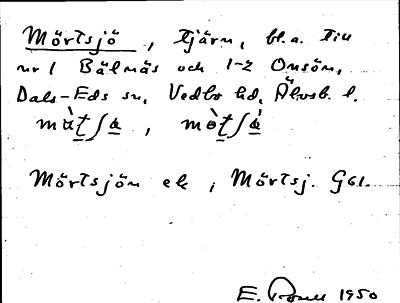 Mörtsjö, tjärn, bl.a. till
nr 1 Bälnäs och 1-2 Onsön,
Dals-Eds sn, Vedbo hd, Älvsb. l.
Mörtsjön ek, Mörtsj. G61.
E. 1950